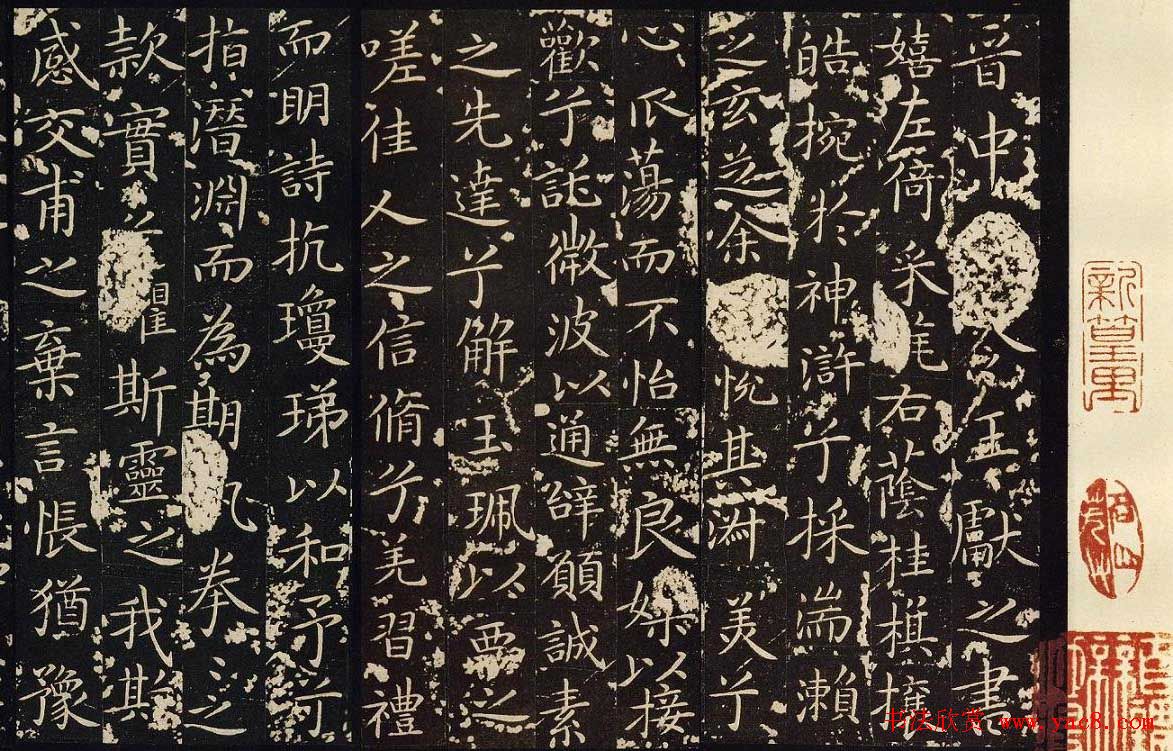 晉中令王獻之書
嬉左倚采旄右蔭桂旗攘
皓捥於神滸兮採湍瀨
之玄芝余悅其淑美兮
心振蕩而不怡無良媒以接
歡兮託微波以通辭願誠素
之先達兮解玉珮以要之
嗟佳人之信脩兮羌習禮
而明詩抗瓊珶以和予兮
指潛淵而為期執拳之
款實兮懼斯靈之我欺
感交甫之棄言悵猶豫
书法欣赏 www.yac8.com